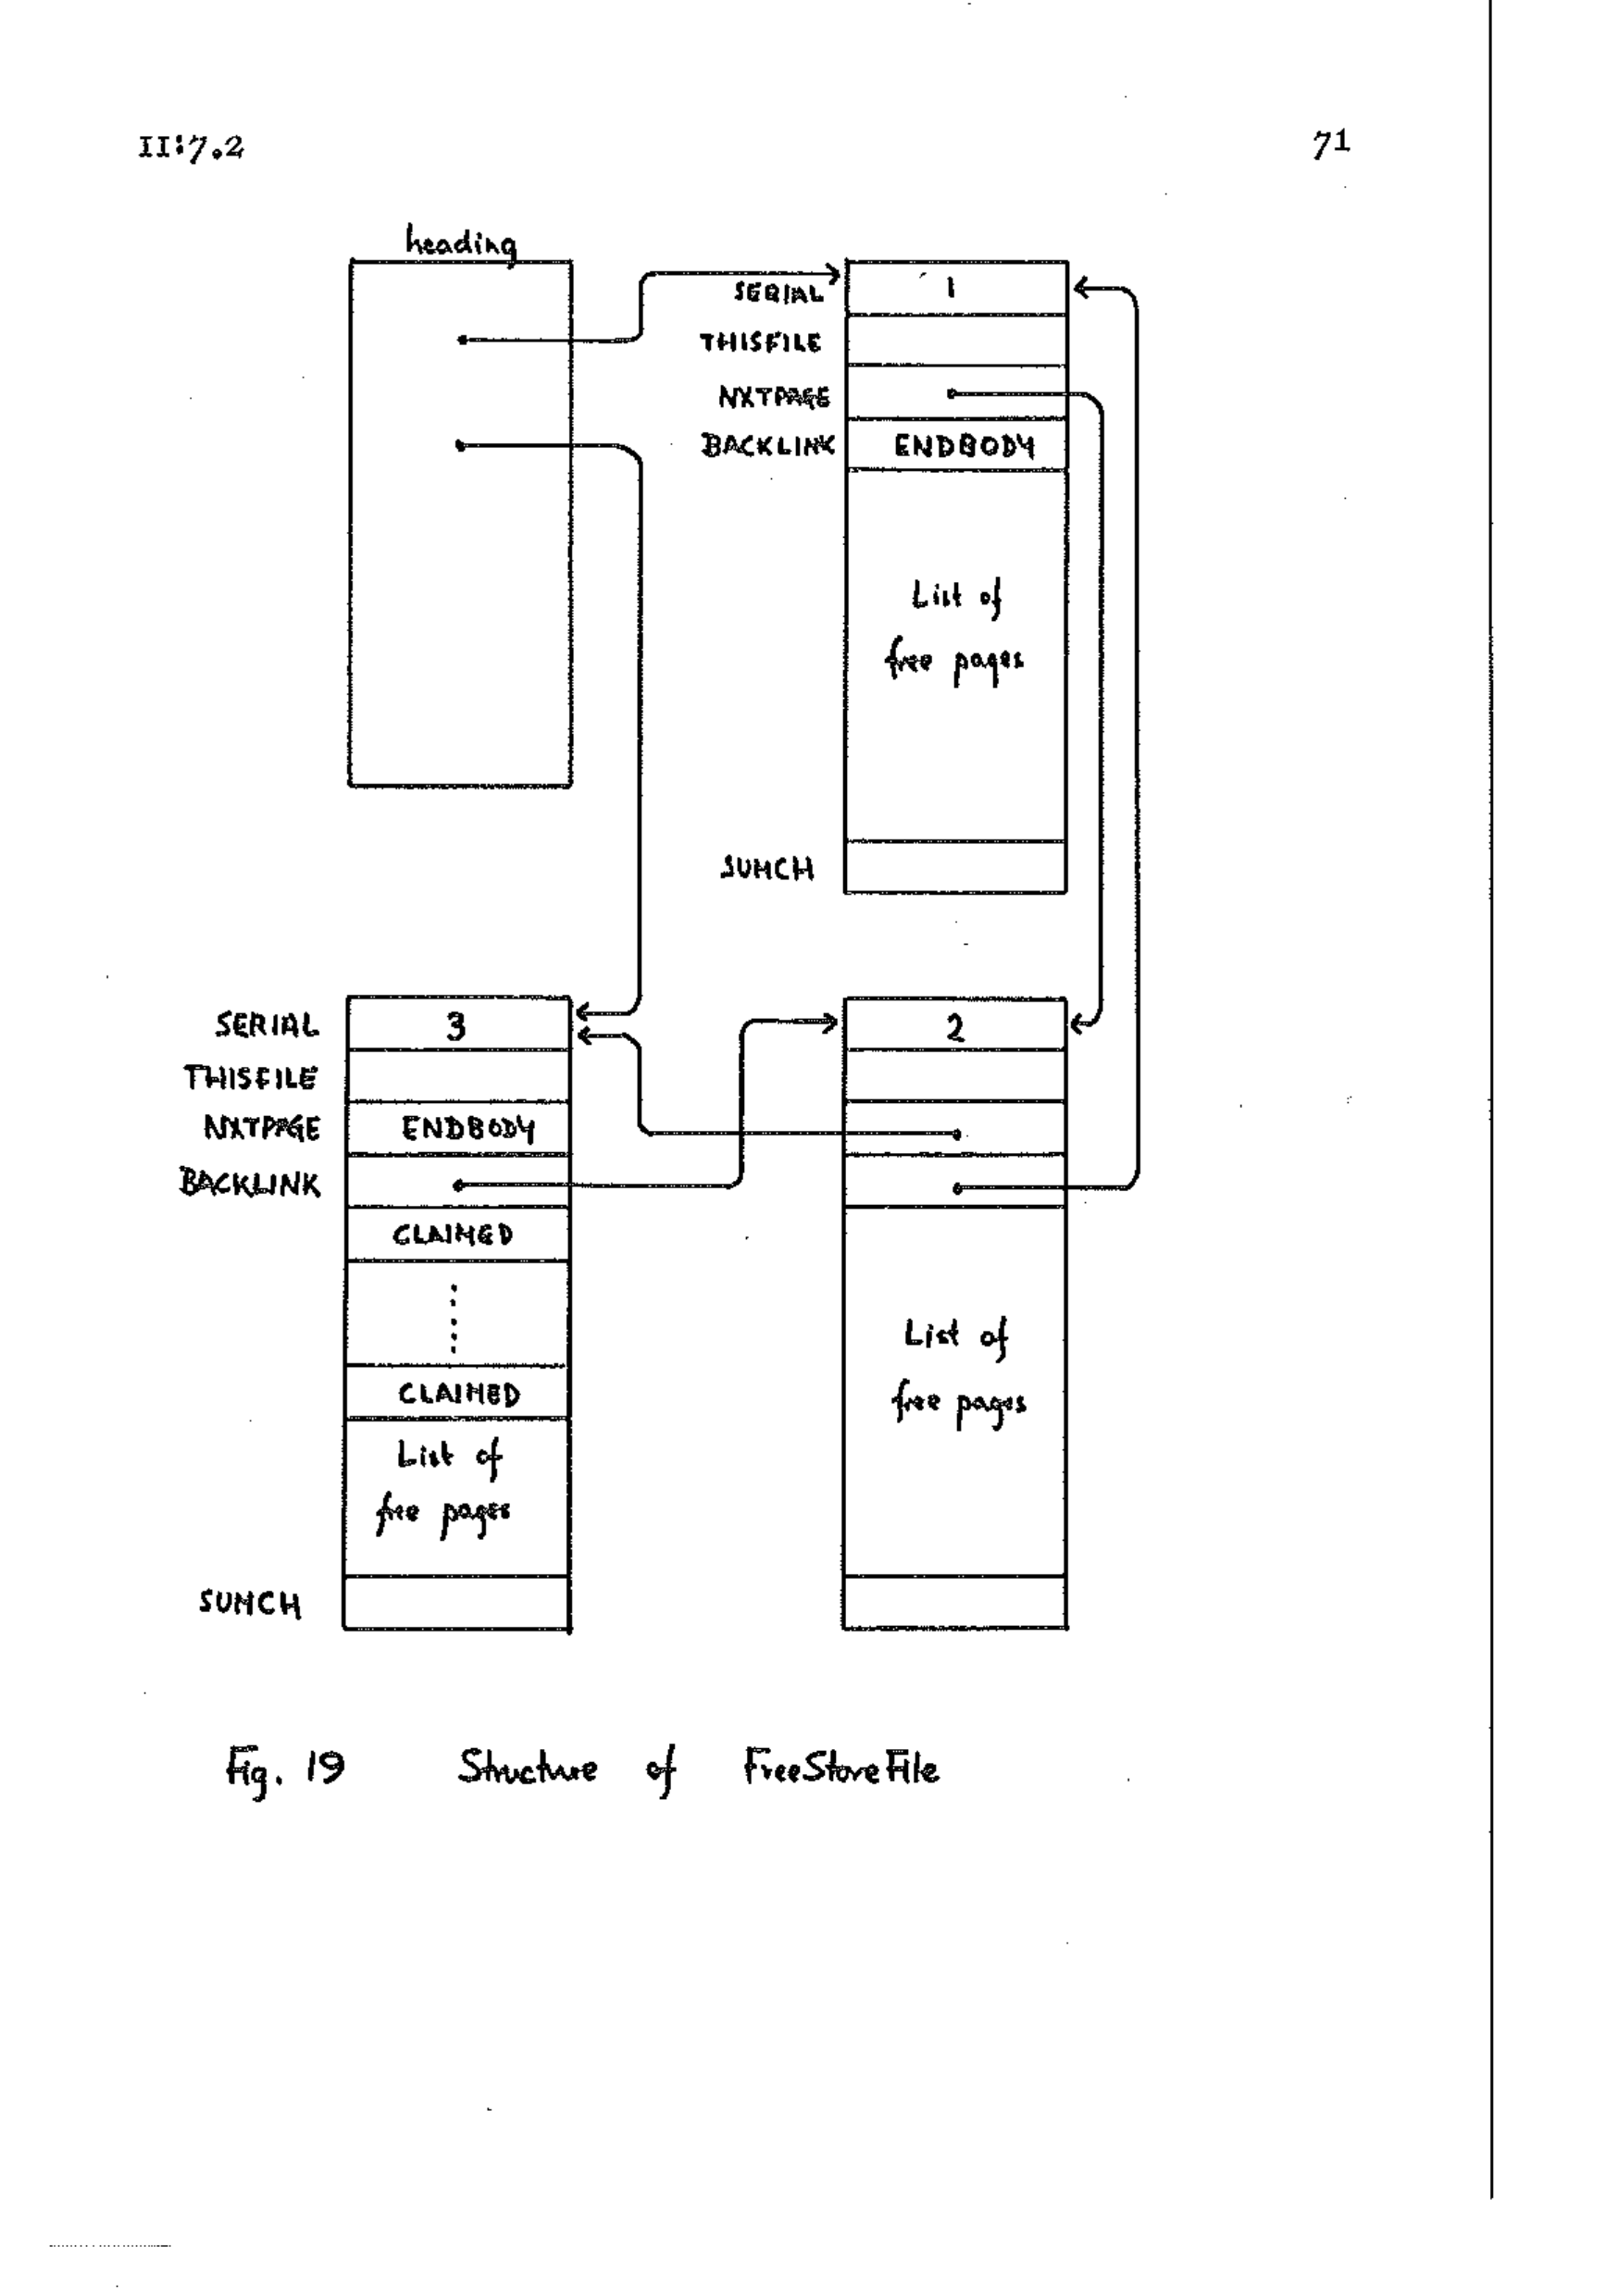 II:7.2 71
heading
SERIAL 1
THISFILE
NXTPAGE
BACKLINK ENDBODY
List of
free pages
SUMCH
SERIAL 3 2
THISFILE
NXTPAGE ENDBODY
BACKLINK
CLAIMED
List of
free pages
CLAIMED
List of
free pages
SUMCH
Fig. 19 Structure of FreeStoreFile